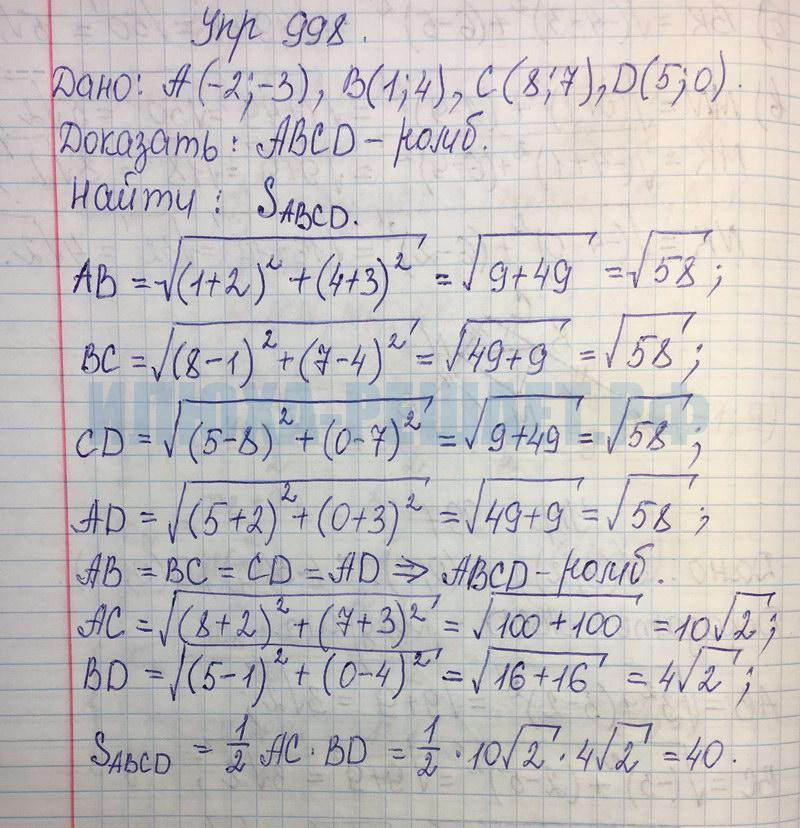 Упр 998.
Дано: A(-2;-3), B(1;4), C(8;7), D(5;0).
Доказать: ABCD - ромб.
Найти: S_ABCD.
AB = √((1+2)² + (4+3)²) = √(9+49) = √58;
BC = √((8-1)² + (7-4)²) = √(49+9) = √58;
ИЛЮХА-РЕШАЕТ.РФ
CD = √((5-8)² + (0-7)²) = √(9+49) = √58;
AD = √((5+2)² + (0+3)²) = √(49+9) = √58;
AB = BC = CD = AD ⇒ ABCD - ромб.
AC = √((8+2)² + (7+3)²) = √(100+100) = 10√2;
BD = √((5-1)² + (0-4)²) = √(16+16) = 4√2;
S_ABCD = 1/2 AC · BD = 1/2 · 10√2 · 4√2 = 40.